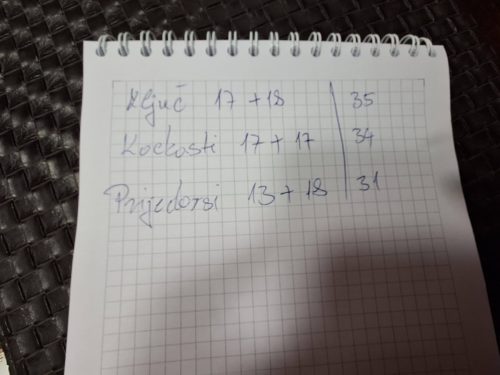 Ključ 17 + 18 35
Kockasti 17 + 17 34
Prijedorsi 13 + 18 31